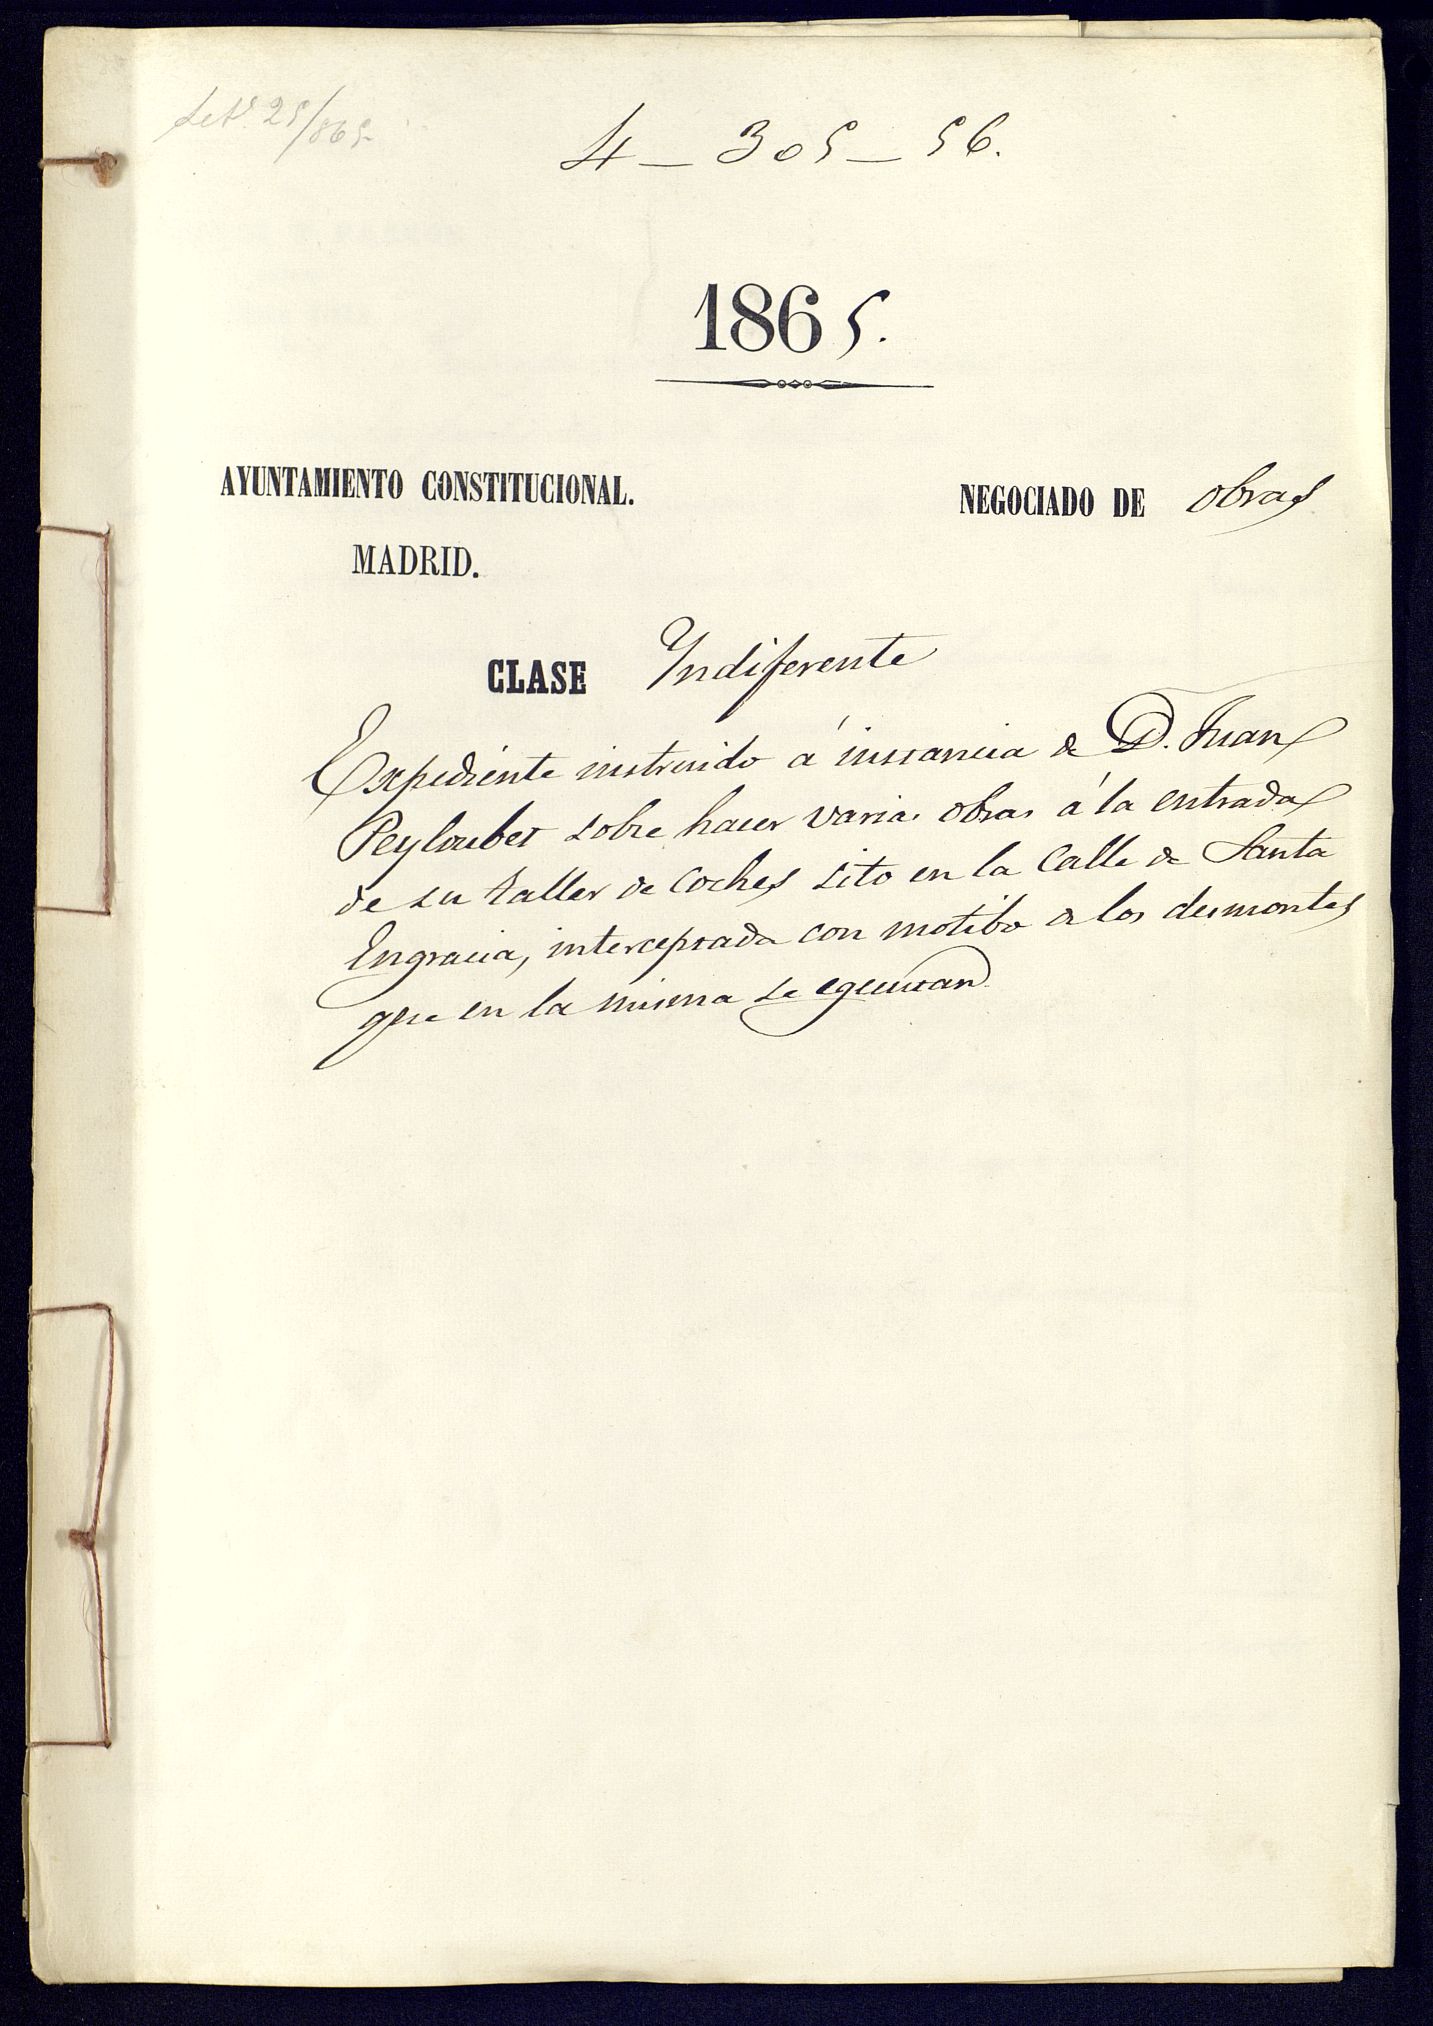 Set.e 25/865
4 - 305 - 56.
1865.
AYUNTAMIENTO CONSTITUCIONAL.
MADRID.
NEGOCIADO DE obras
CLASE Yndiferente
Expediente instruido á instancia de D. Juan
Peyloubet sobre hacer varias obras á la entrada
de su taller de coches sito en la Calle de Santa
Engracia, interceptada con motibo de los desmontes
que en la misma se egecutan